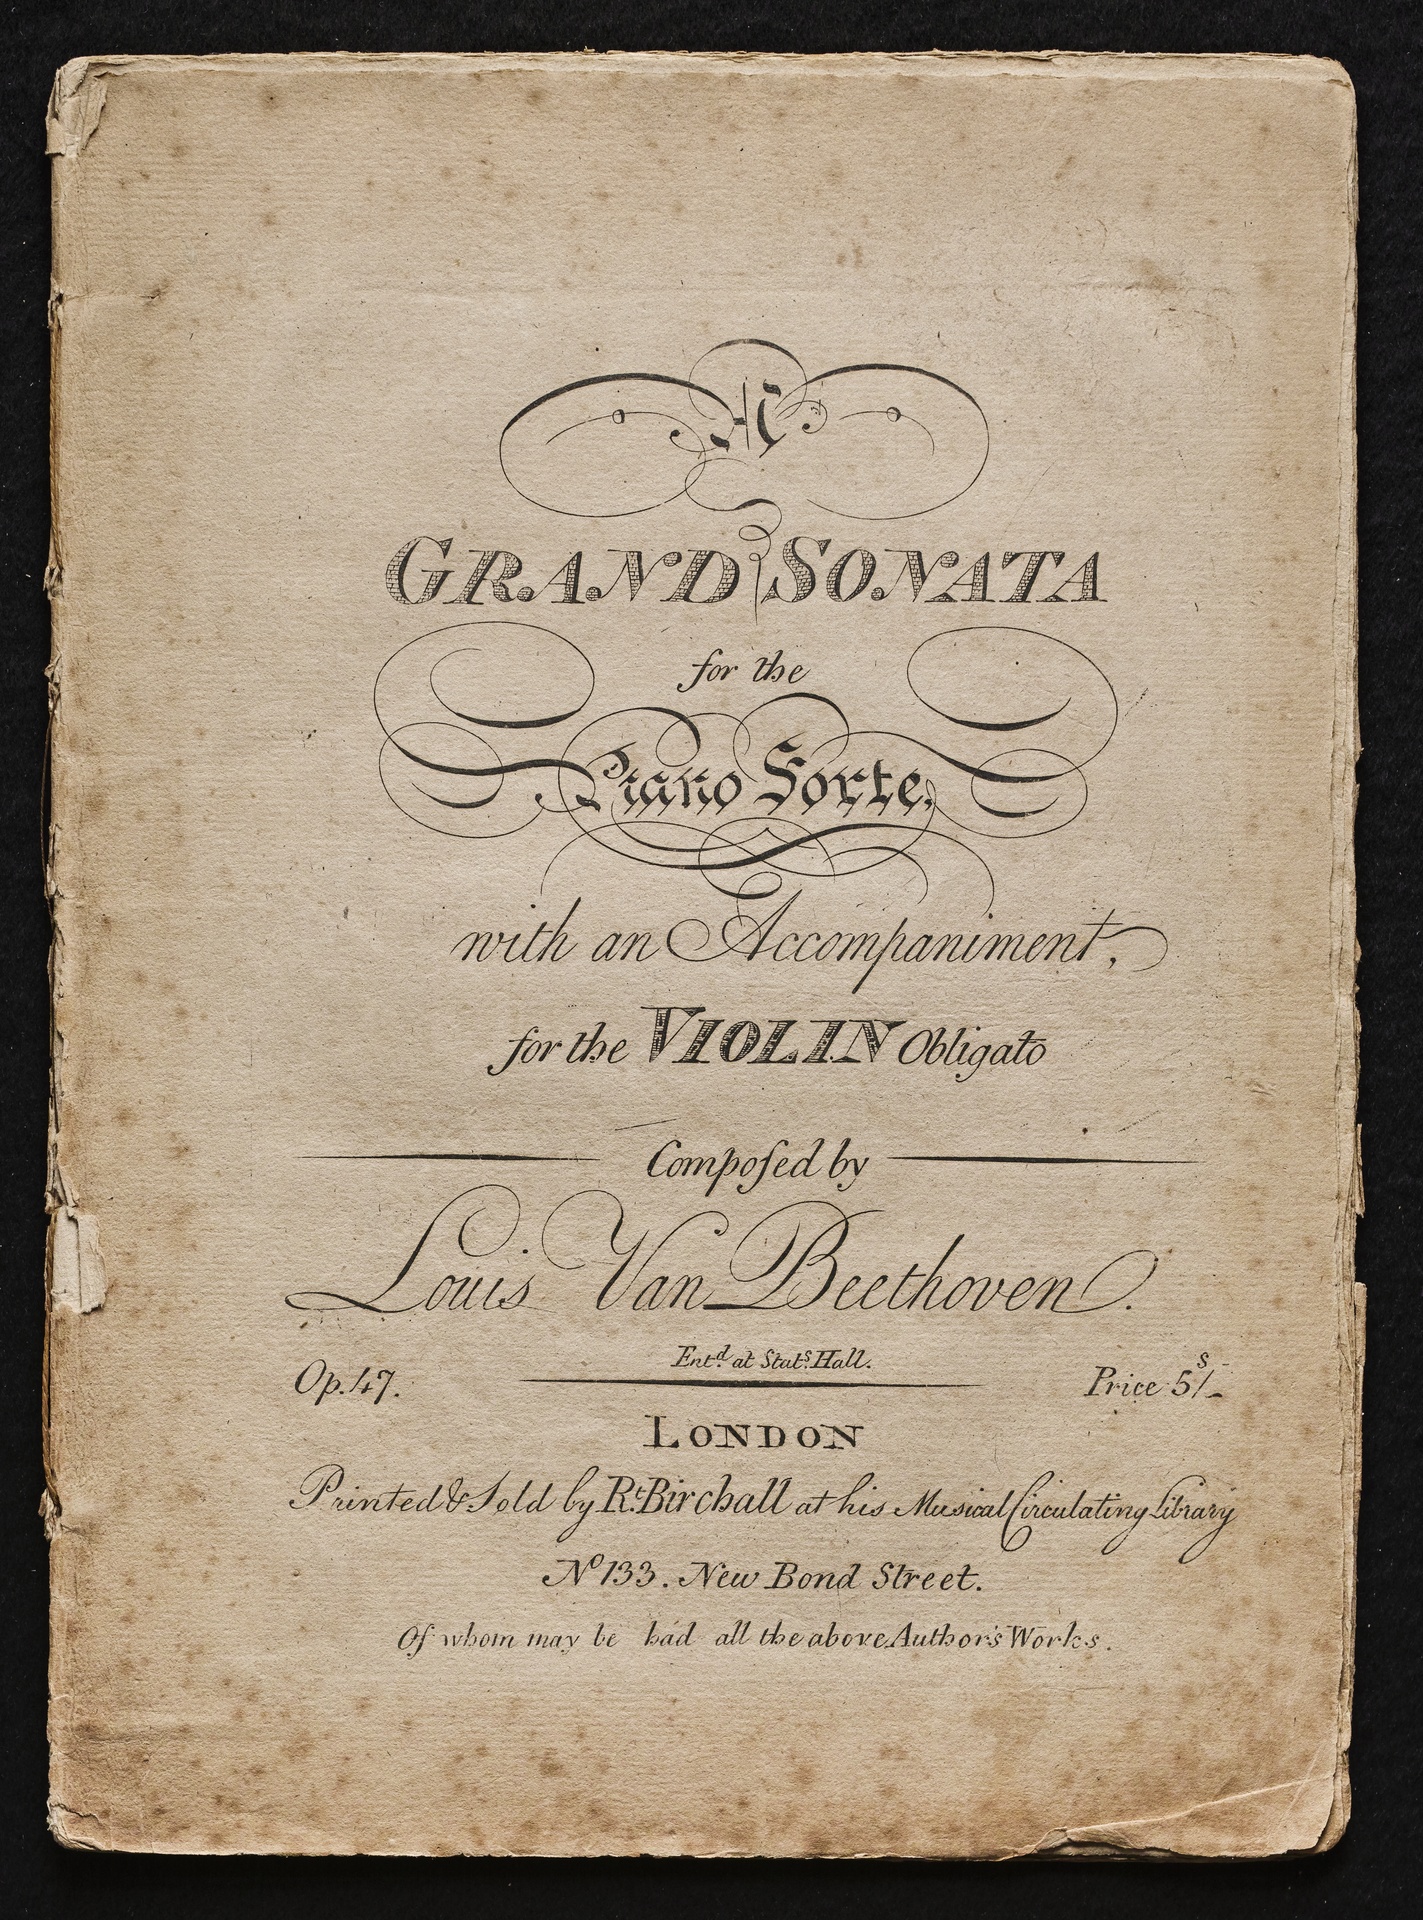 A
GRAND SONATA
for the
Piano Forte,
with an Accompaniment,
for the VIOLIN Obligato
Compoſed by
Louis Van Beethoven.
Entd. at Stats. Hall.
Op. 47.
Price 5s/-
LONDON
Printed & Sold by Rt. Birchall at his Musical Circulating Library
No 133. New Bond Street.
Of whom may be had all the above Author's Works.